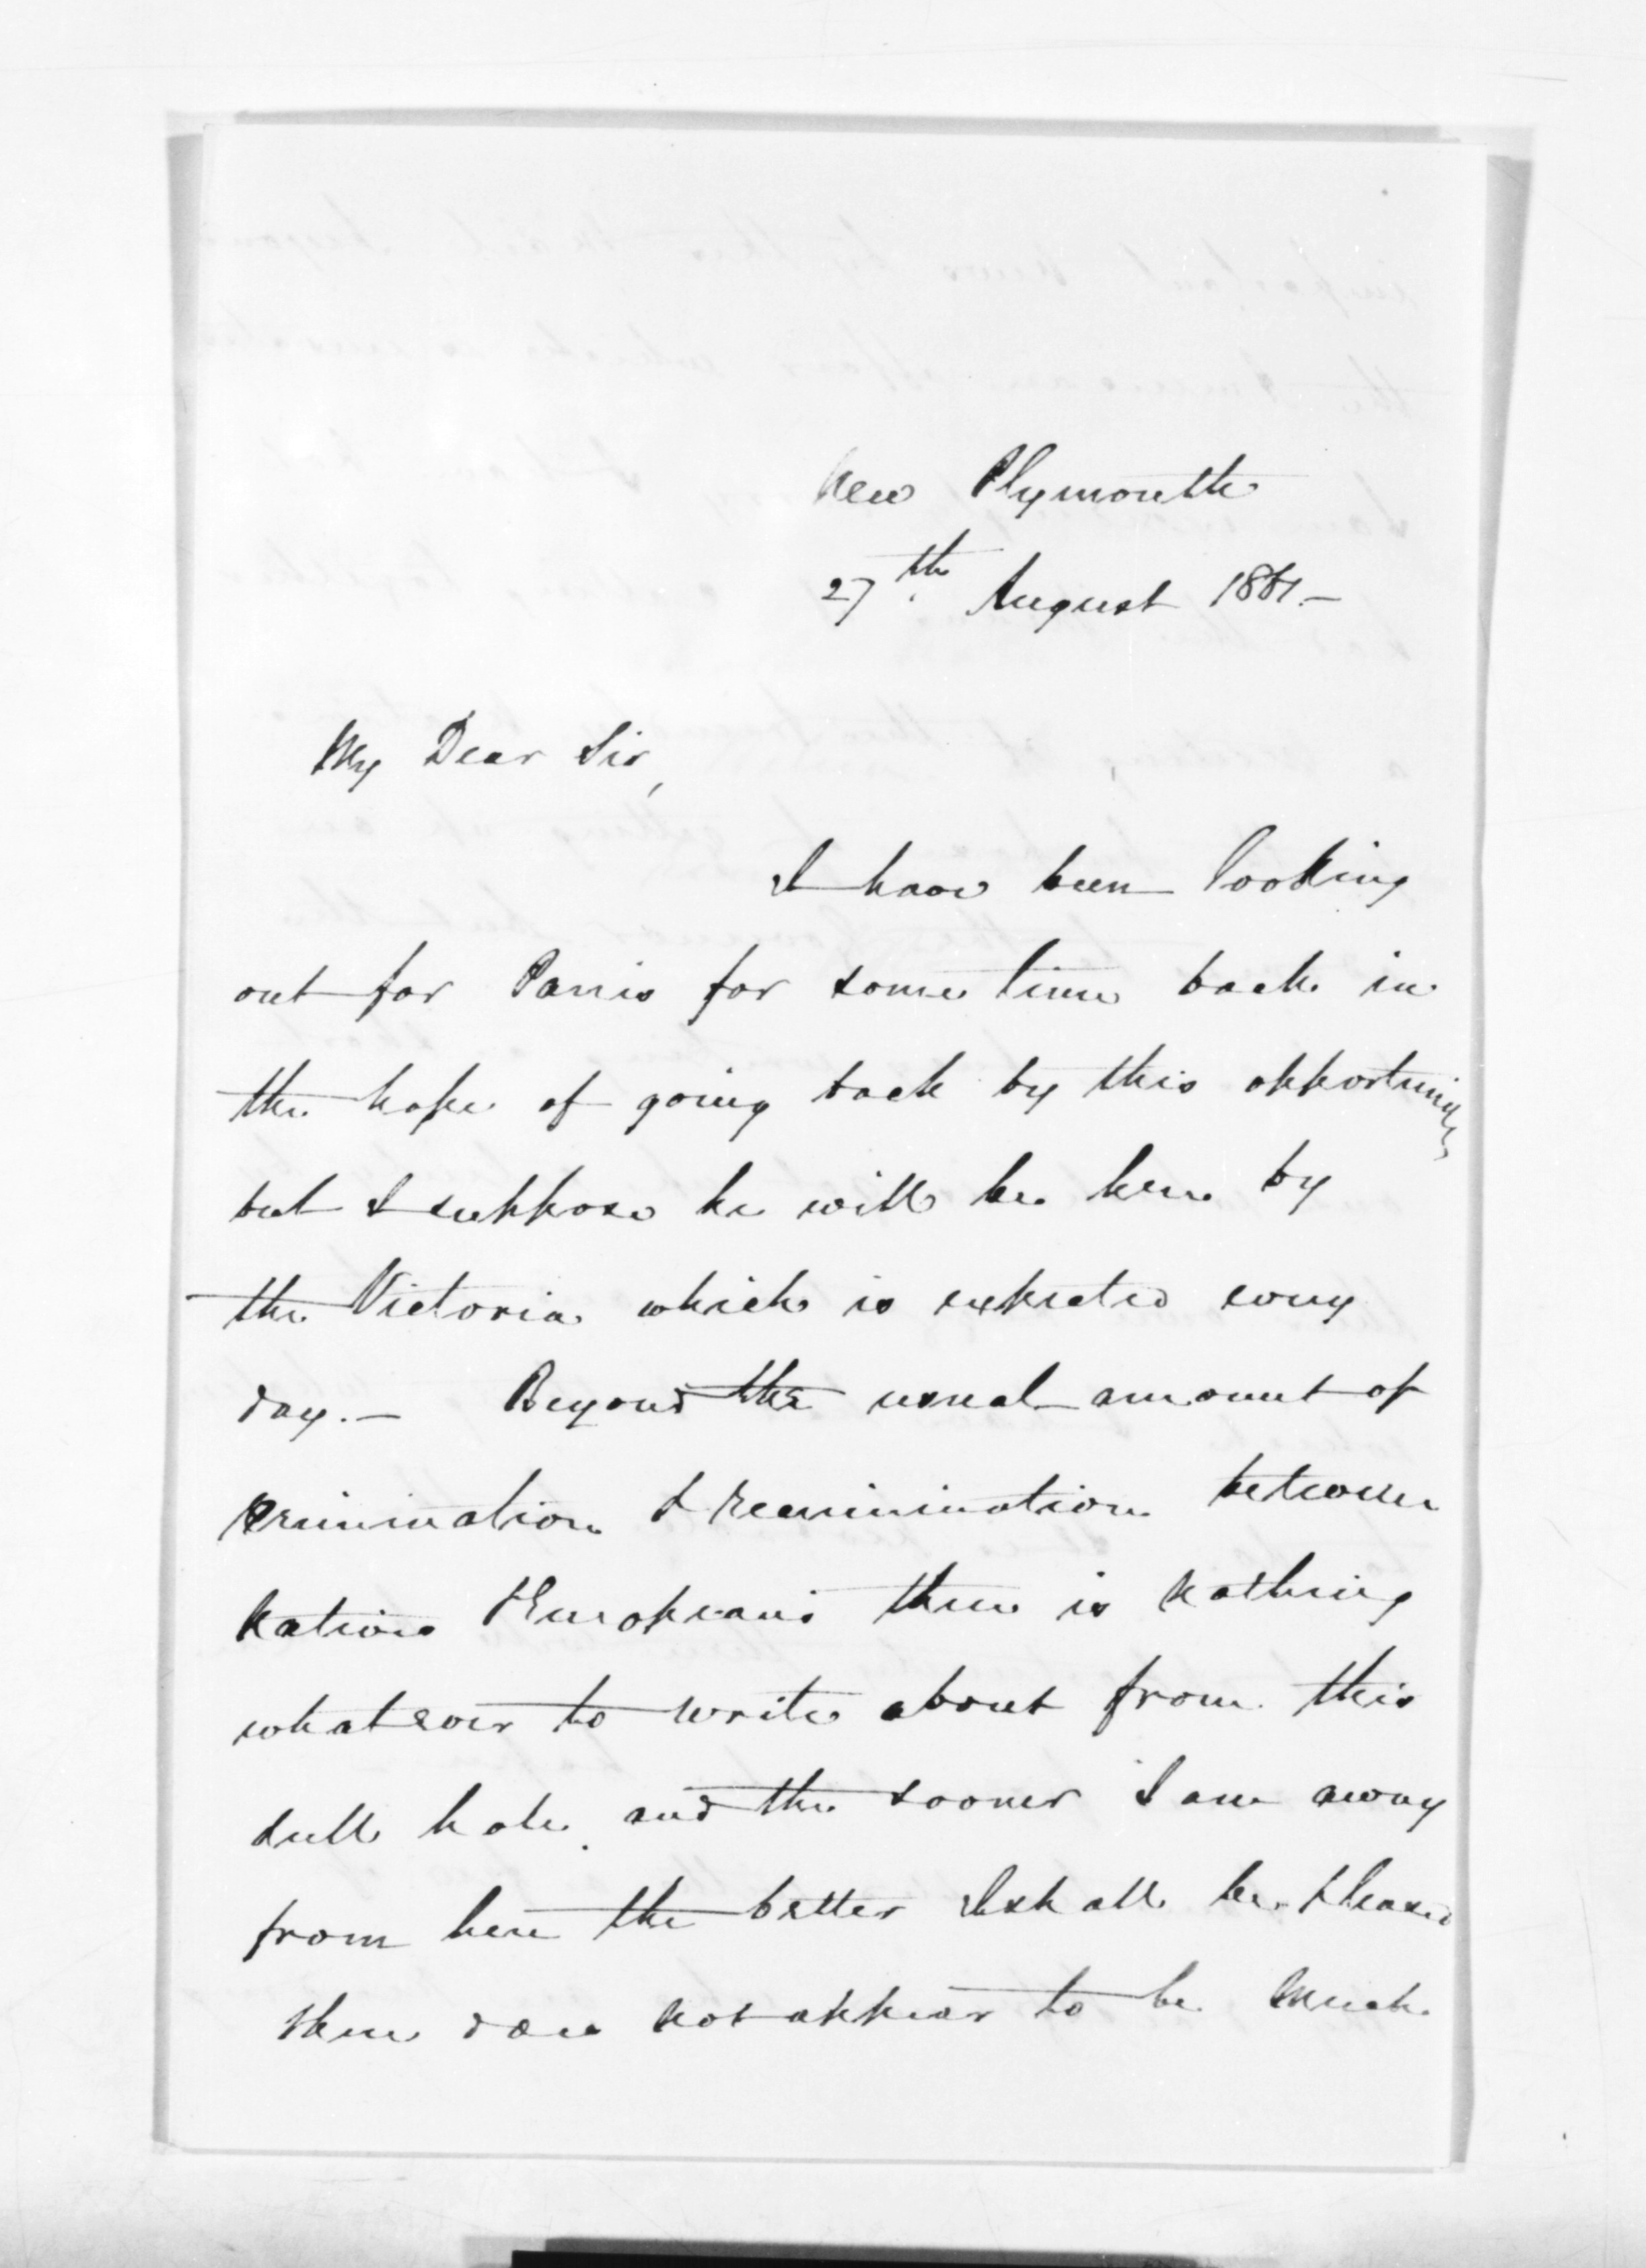 New Plymouth
27th August 1861.—
My Dear Sir,
I have been looking
out for Parris for some time back in
the hope of going back by this opportunity
but I suppose he will be here by
the Victoria which is expected every
day.— Beyond the usual amount of
crimination & recrimination between
Natives & Europeans there is nothing
whatever to write about from this
dull hole and the sooner I am away
from here the better I shall be pleased
there does not appear to be much